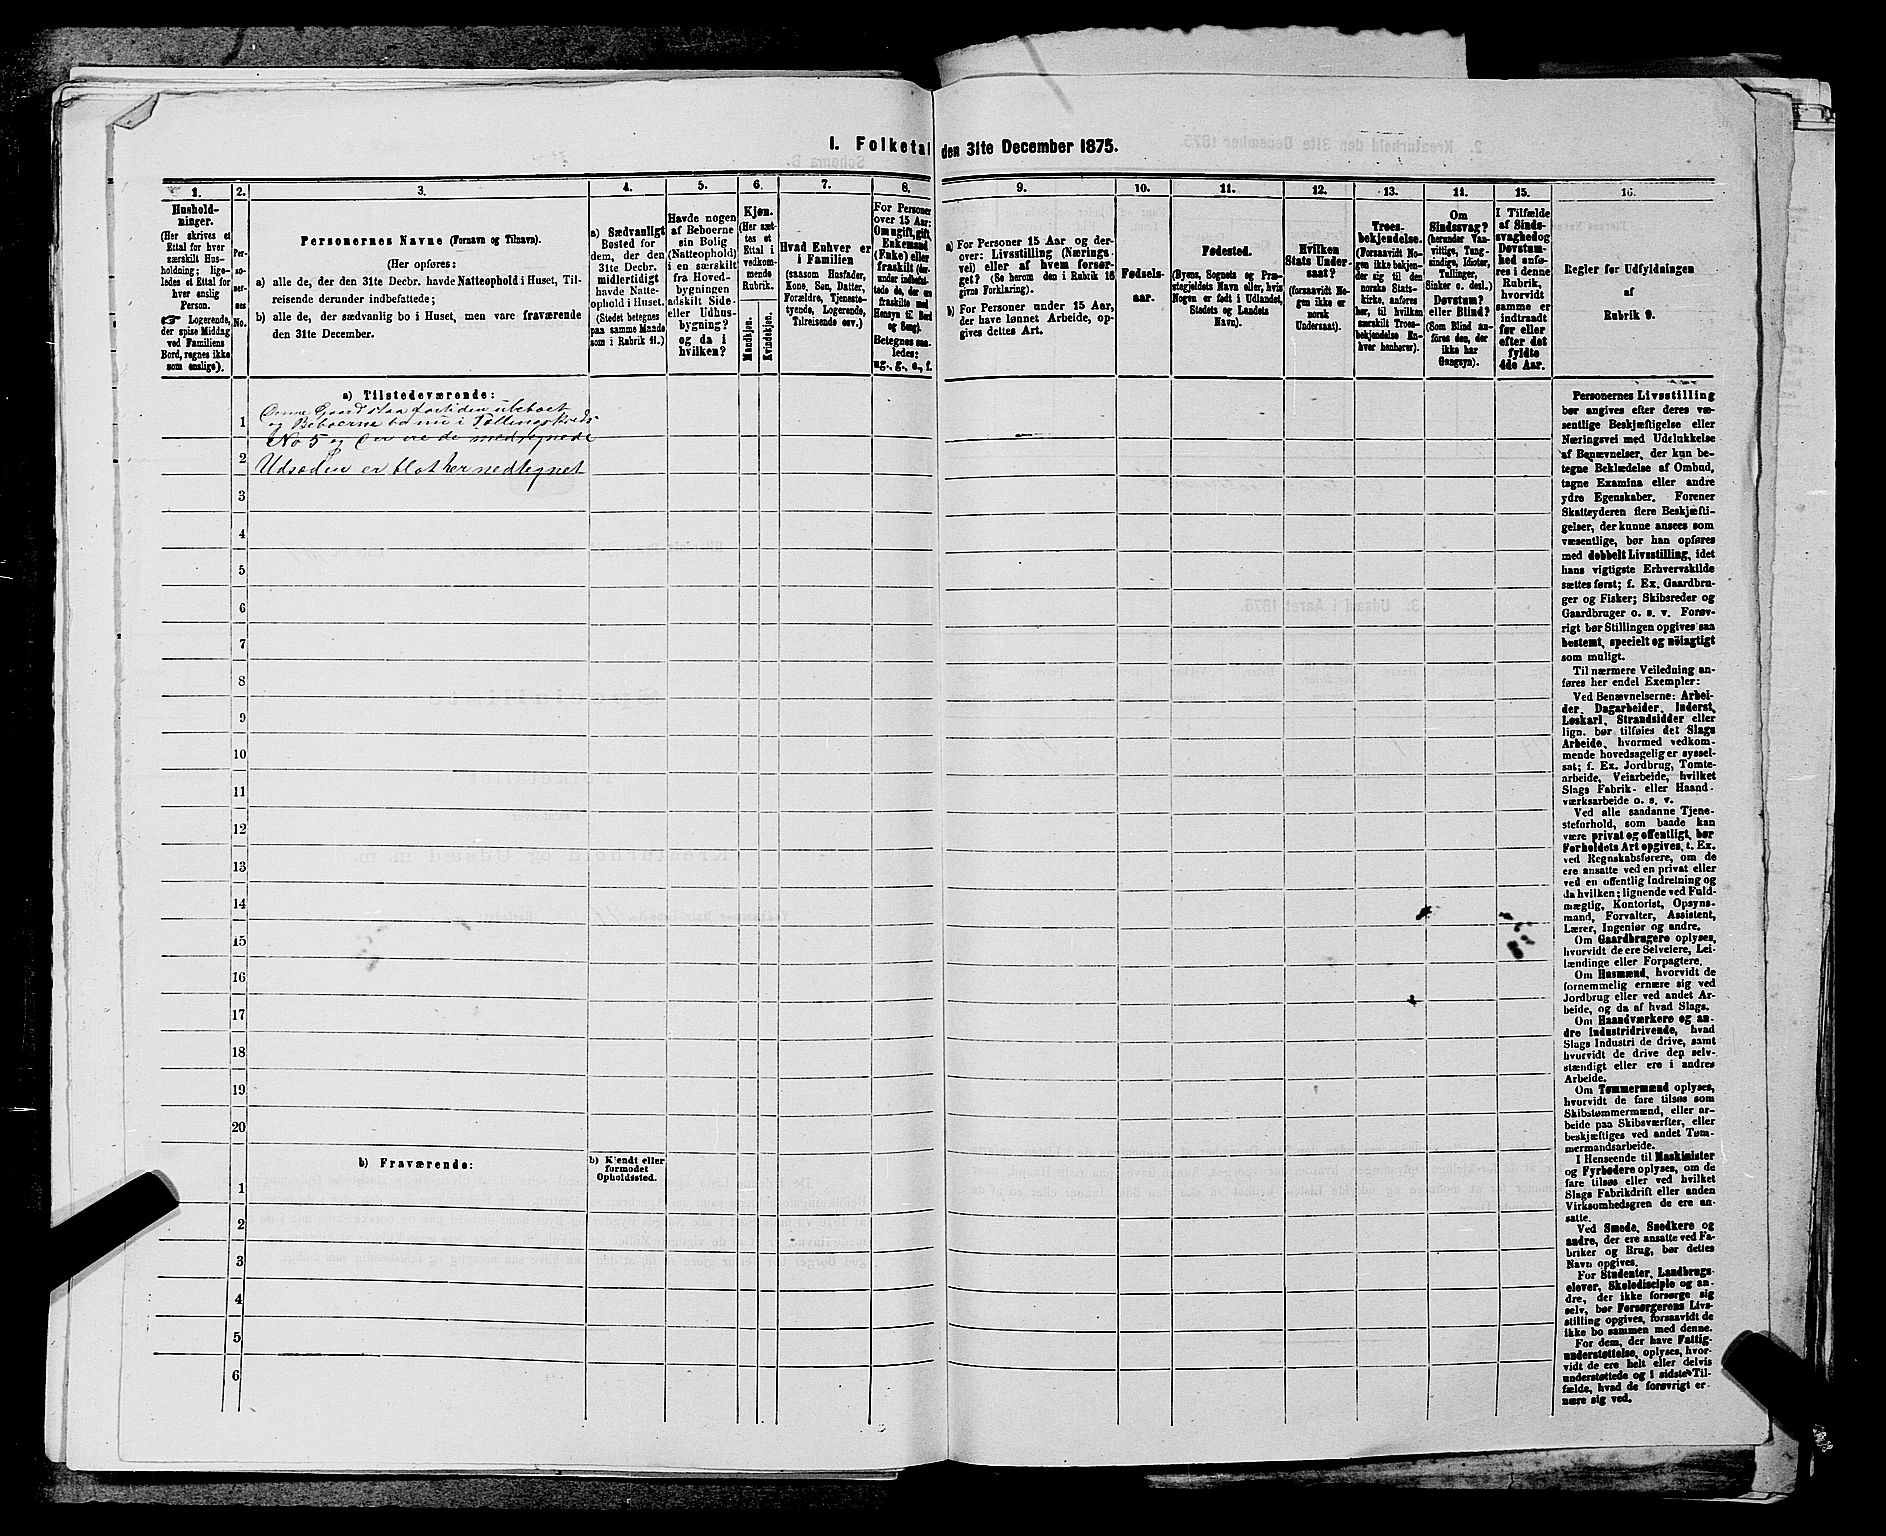 I. Folketal den 31te December 1875.
1.
2.
3.
4.
5.
6.
7.
8.
9.
10.
11.
12.
13.
14.
15.
16.
Hushold-
ninger.
(Her skrives et
Ettal for hver
særskilt Hus-
holdning; lige-
ledes et Ettal for
hver enslig
Person.
☞ Logerende,
der spise Middag
ved Familiens
Bord, regnes ikke
som enslige).
Per-
so-
ner-
nes
No.
Personernes Navne (Fornavn og Tilnavn).
(Her opføres:
a) alle de, der den 31te Decbr. havde Natteophold i Huset, Til-
reisende derunder indbefattede;
b) alle de, der sædvanlig bo i Huset, men vare fraværende
den 31te December.
a) Sædvanligt
Bosted for
dem, der den
31te Decbr.
midlertidigt
havde Natte-
ophold i Huset.
(Stedet betegnes
paa samme Maade
som i Rubrik 11.)
Havde nogen
af Beboerne
sin Bolig
(Natteophold)
i en særskilt
fra Hoved-
bygningen
adskilt Side-
eller Udhus-
bygning?
og da i
hvilken?
Kjøn.
(Her sæt-
tes et
Ettal i
vedkom-
mende
Rubrik.
Mandkjøn.
Kvindekjøn.
Hvad Enhver er
i Familien
(saasom Husfader,
Kone, Søn, Datter,
Forældre, Tjeneste-
tyende, Logerende,
Tilreisende osv.)
For Personer
over 15 Aar:
Om ugift, gift,
Enkemand
(Enke) eller
fraskilt (her-
under indbefat-
tede de, der ere
fraskilte med
Hensyn til Bord
og Seng).
Betegnes saa-
ledes:
ug., g., e., f.
a) For Personer 15 Aar og der-
over: Livsstilling (Nærings-
vei) eller af hvem forsør-
get? (Se herom den i Rubrik 16
givne Forklaring).
b) For Personer under 15 Aar,
der have lønnet Arbeide, op-
gives dettes Art.
Fødsels-
aar.
Fødested.
(Byens, Sognets og Præ-
stegjeldets Navn eller, hvis
Nogen er født i Udlandet,
Stedets og Landets
Navn).
Hvilken
Stats Under-
saat?
(forsaavidt No-
gen ikke er
norsk
Undersaat).
Troes-
bekjendelse.
(Forsaavidt No-
gen ikke bekjen-
der sig til den
norske Stats-
kirke, anføres
her, til hvilken
særskilt Troes-
bekjendelse En-
hver henhører).
Om
Sindssvag?
(herunder Van-
vittige, Tung-
sindige, Idioter,
Tullinger,
Sinker o. desl.)
Døvstum?
eller Blind?
(Som Blind an-
føres den, der
ikke har
Gangsyn).
I Tilfælde
af Sinds-
svaghed og
Døvstum-
hed anfø-
res i denne
Rubrik,
hvorvidt
samme er
indtraadt
før eller
efter det
fyldte
4de Aar.
Regler for Udfyldningen
af
Rubrik 9.
a) Tilstedeværende:
1 Denne Gaard staa fortiden ubeboet
og Beboerne bo nu i Tællingskreds
No 5 og der ere de medregnede
2 Udsæden er blot her nedtegnet
3
4
5
6
7
8
9
10
11
12
13
14
15
16
17
18
19
20
b) Fraværende:
b) Kjendt eller
formodet
Opholdssted.
1
2
3
4
5
6
Personernes Livsstilling
bør angives efter deres væ-
sentlige Beskjæftigelse eller
Næringsvei med Udelukkelse
af Benævnelser, der kun be-
tegne Beklædelse af Ombud,
tagne Examina eller andre
ydre Egenskaber. Forener
Skatteyderen flere Beskjæfti-
gelser, der kunne ansees som
væsentlige, bør han opføres
med dobbelt Livsstilling, idet
hans vigtigste Erhvervskilde
sættes først; f. Ex. Gaardbru-
ger og Fisker; Skibsreder og
Gaardbruger o. s. v. Forøv-
rigt bør Stillingen opgives saa
bestemt, specielt og nöiagtigt
som muligt.
Til nærmere Veiledning an-
føres her endel Exempler:
Ved Benævnelserne: Arbei-
der, Dagarbeider, Inderst,
Løskarl, Strandsidder eller
lign. bør tilføies det Slags
Arbeide, hvormed vedkom-
mende hovedsagelig er syssel-
sat; f. Ex. Jordbrug, Tomte-
arbeide, Veiarbeide, hvilket
Slags Fabrik- eller Haand-
værksarbeide o. s. v.
Ved alle saadanne Tjene-
steforhold, som baade kan
være privat og offentligt, bør
Forholdets Art opgives, t. Ex.
ved Regnskabsførere, om de
ere ansatte ved en privat eller
ved en offentlig Indretning og
da hvilken; lignende ved Fuld-
mægtig, Kontorist, Opsyns-
mand, Forvalter, Assistent,
Lærer, Ingeniør og andre.
Om Gaardbrugere oplyses,
hvorvidt de ere Selveiere, Lei-
lændinge eller Forpagtere.
Om Husmænd, hvorvidt de
fornemmelig ernære sig ved
Jordbrug eller ved andet Ar-
beide, og da af hvad Slags.
Om Haandværkere og an-
dre Industridrivende, hvad
Slags Industri de drive, samt
hvorvidt de drive den selv-
stændigt eller ere i andres
Arbeide.
Om Tømmermænd oplyses,
hvorvidt de fare tilsøs som
Skibstømmermænd, eller ar-
beide paa Skibsværfter, eller
beskjæftiges ved andet Tøm-
mermandsarbeide.
I Henseende til Maskinister
og Fyrbødere oplyses, om de
fare tilsøs eller ved hvilket
Slags Fabrikdrift eller anden
Virksomhedsgren de ere an-
satte.
Ved Smede, Snedkere og
andre, der ere ansatte ved Fa-
briker og Brug, bør dettes
Navn opgives.
For Studenter, Landbrugs-
elever, Skoledisciple og an-
dre, der ikke forsørge sig
selv, bør Forsørgerens Livs-
stilling opgives, forsaavidt de
ikke bo sammen med denne.
For dem, der have Fattig-
understøttelse, oplyses, hvor-
vidt de ere helt eller delvis
understøttede og i sidste Til-
fælde, hvad de forøvrigt er-
nære sig ved.